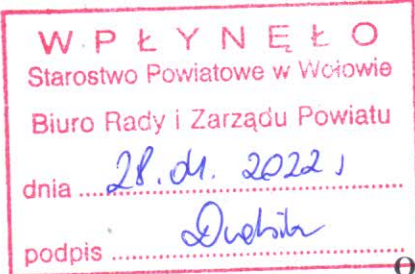 WPŁYNĘŁO
Starostwo Powiatowe w Wołowie
Biuro Rady i Zarządu Powiatu
dnia 28.01.2022 r
podpis